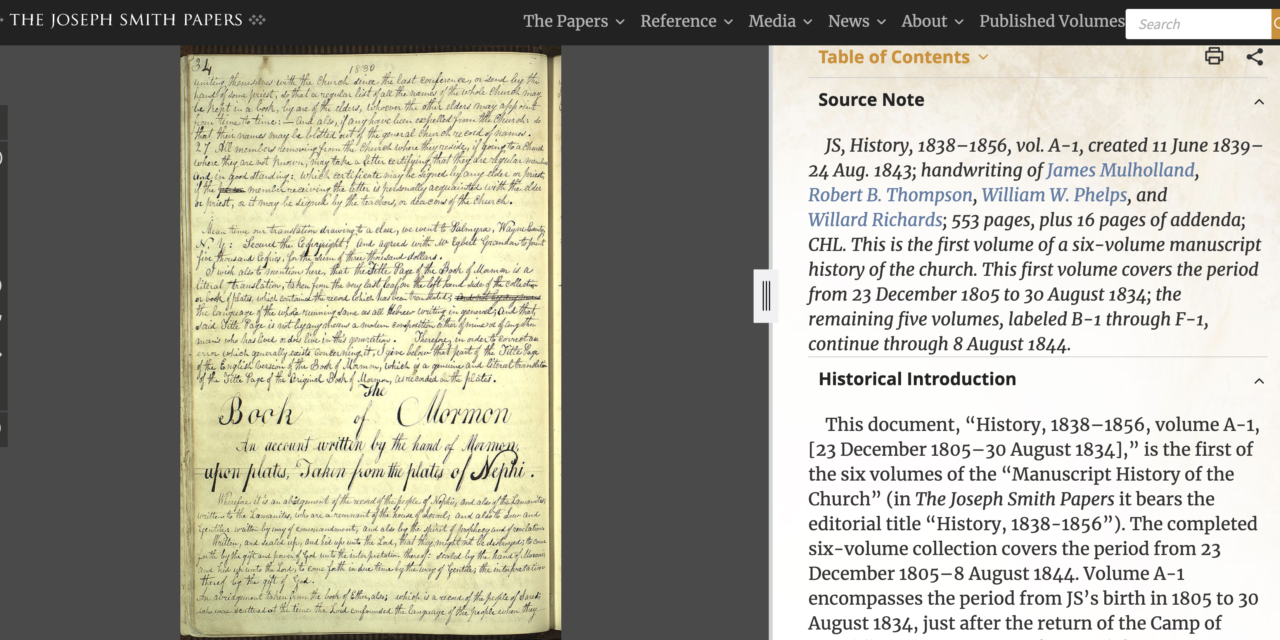 THE JOSEPH SMITH PAPERS
The Papers
Reference
Media
News
About
Published Volumes
Search
34
1830
uniting themselves with the church since the last conference, or send by the
hand of some priest, so that a regular list of all the names of the whole church may
be kept in a book, by one of the elders, whoever the other elders may appoint
from time to time: — And also, if any have been expelled from the Church: so
that their names may be blotted out of the general Church record of names.
27 All members removing from the Church where they reside, if going to a Church
where they are not known, may take a letter certifying, that they are regular members
and in good standing: which certificate may be signed by any elder or priest,
if the member receiving the letter is personally acquainted with the elder
or priest, or it may be signed by the teachers, or deacons of the Church.
Mean time our translation drawing to a close, we went to Palmyra, Wayne County,
N. Y: Secured the Copyright; and agreed with Mr Egbert Grandon to print
five thousand Copies, for the sum of three thousand dollars.
I wish also to mention here, that the Title Page of the Book of Mormon is a
literal translation, taken from the very last leaf, on the left hand side of the collection
or book of plates, which contained the record which has been translated;
the language of the whole running same as all Hebrew writing in general; And that,
said Title Page is not by any means a modern composition either of mine or of any other
man's who has lived or does live in this generation. Therefore, in order to correct an
error which generally exists concerning it, I give below that part of the Title Page
of the English version of the Book of Mormon, which is a genuine and literal translation
of the Title Page of the Original Book of Mormon, as recorded on the plates.
The
Book of Mormon
An account written by the hand of Mormon,
upon plates, Taken from the plates of Nephi.
Wherefore it is an abridgement of the record of the people of Nephi; and also of the Lamanites;
written to the Lamanites, who are a remnant of the house of Israel; and also to Jew and
Gentile: written by way of commandment, and also by the spirit of prophecy and of revelation.
Written, and sealed up, and hid up unto the Lord, that they might not be destroyed; to come
forth by the gift and power of God unto the interpretation thereof: sealed by the hand of Moroni
and hid up unto the Lord, to come forth in due time by the way of Gentile; the interpretation
thereof by the gift of God.
An abridgement taken from the book of Ether, also; which is a record of the people of Jared;
who were scattered at the time the Lord confounded the language of the people when they
Table of Contents
Source Note
JS, History, 1838–1856, vol. A-1, created 11 June 1839–
24 Aug. 1843; handwriting of James Mulholland,
Robert B. Thompson, William W. Phelps, and
Willard Richards; 553 pages, plus 16 pages of addenda;
CHL. This is the first volume of a six-volume manuscript
history of the church. This first volume covers the period
from 23 December 1805 to 30 August 1834; the
remaining five volumes, labeled B-1 through F-1,
continue through 8 August 1844.
Historical Introduction
This document, “History, 1838–1856, volume A-1,
[23 December 1805–30 August 1834],” is the first of
the six volumes of the “Manuscript History of the
Church” (in The Joseph Smith Papers it bears the
editorial title “History, 1838-1856”). The completed
six-volume collection covers the period from 23
December 1805–8 August 1844. Volume A-1
encompasses the period from JS’s birth in 1805 to 30
August 1834, just after the return of the Camp of